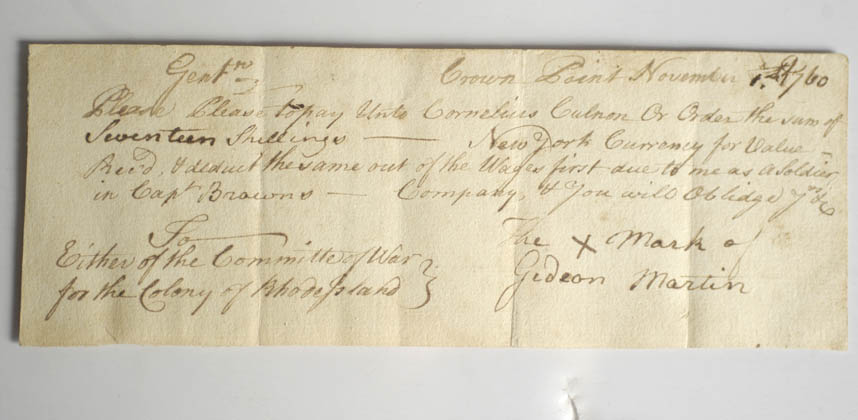 Gentn Crown Point November 1st 1760
Please Please to pay Unto Cornelius Culnon Or Order the sum of
Seventeen Shillings — New York Currency for Value
Rec'd, & deduct the same out of the Wages first due to me as a Soldier
in Capt Browns — Company, & You will Oblidge Yrs &c
To
Either of the Committe of War
for the Colony of Rhode Island
The X Mark of
Gideon Martin